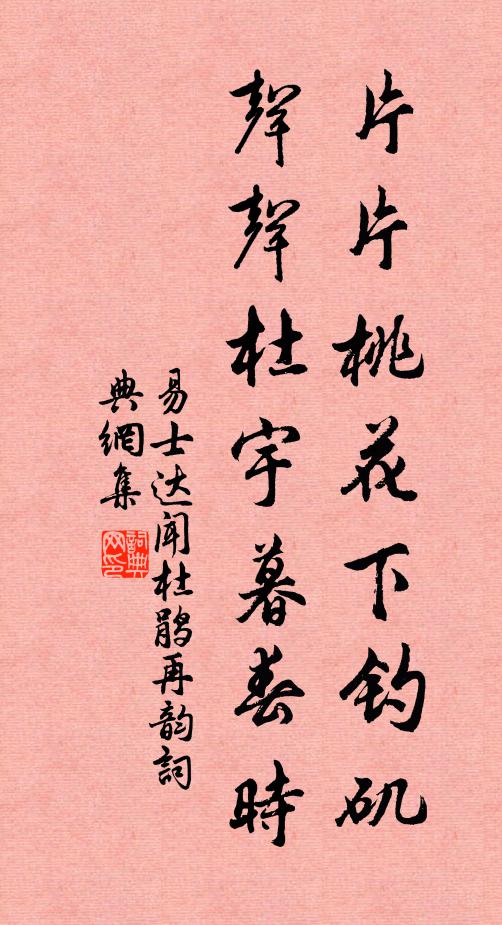 片片桃花下钓矶
聲聲杜宇暮春時
易士达闻杜鹃再韵詞
典網集
詞典网印